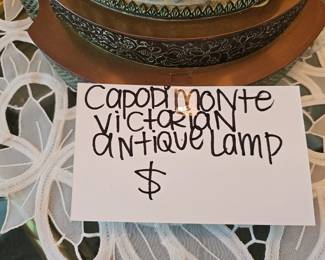 CAPODIMONTE
VICTORIAN
ANTIQUE LAMP
$